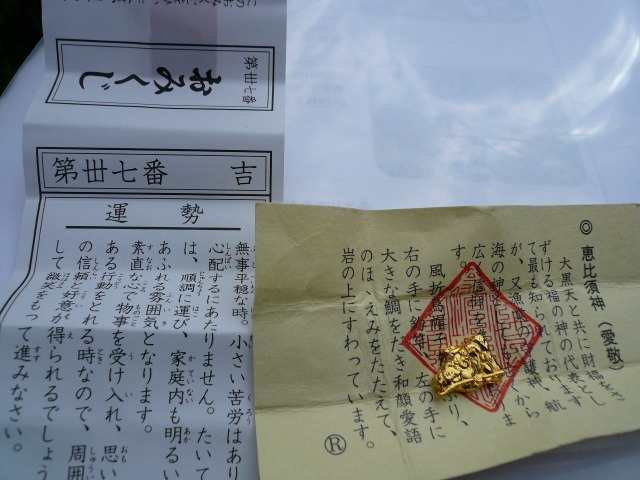 おみくじ
第丗七番
第丗七番 吉
運勢
無事平穏な時。小さい苦労はあり
心配するにあたりません。たいて
は、順調に運び、家庭内も明るい
あふれる雰囲気となります。
素直な心で物事を受け入れ、思い
ある行動をとれる時なので、周囲
の信頼と好意が得られるでしょう
して微笑をもって進みなさい。
◎ 恵比須神（愛敬）
大黒天と共に財福をさ
ずける福の神の代表とし
て最も知られております
が、又漁 の守護神、航
海の神 から
広く信仰を ま
す。
風折烏帽子 ぶり、
右の手に釣竿、左の手に
大きな鯛をだき和顔愛語
のほゝえみをたたえて、
岩の上にすわっています。
®